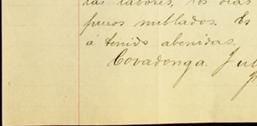 las labores, los dias
pocos nublados. Es
á tenido abenidas.
Covadonga. Jul